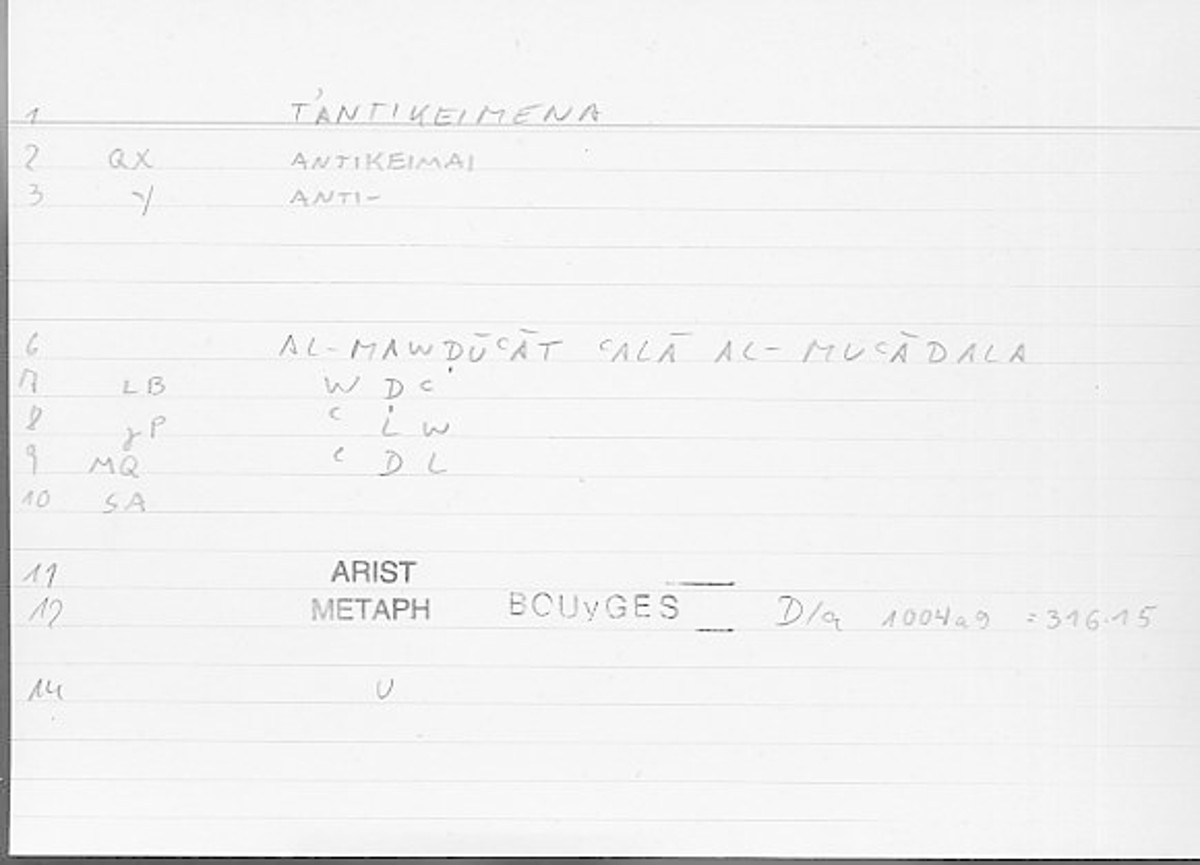 1 T'ANTIKEIMENA
2 QX ANTIKEIMAI
3 y ANTI-
6 AL-MAWḌŪʿĀT ʿALĀ AL-MUʿĀDALA
7 LB W Ḍ ʿ
8 yP ʿ L W
9 MQ ʿ D L
10 SA
11 ARIST
12 METAPH BOUyGES D/a 1004a9 = 316.15
14 U